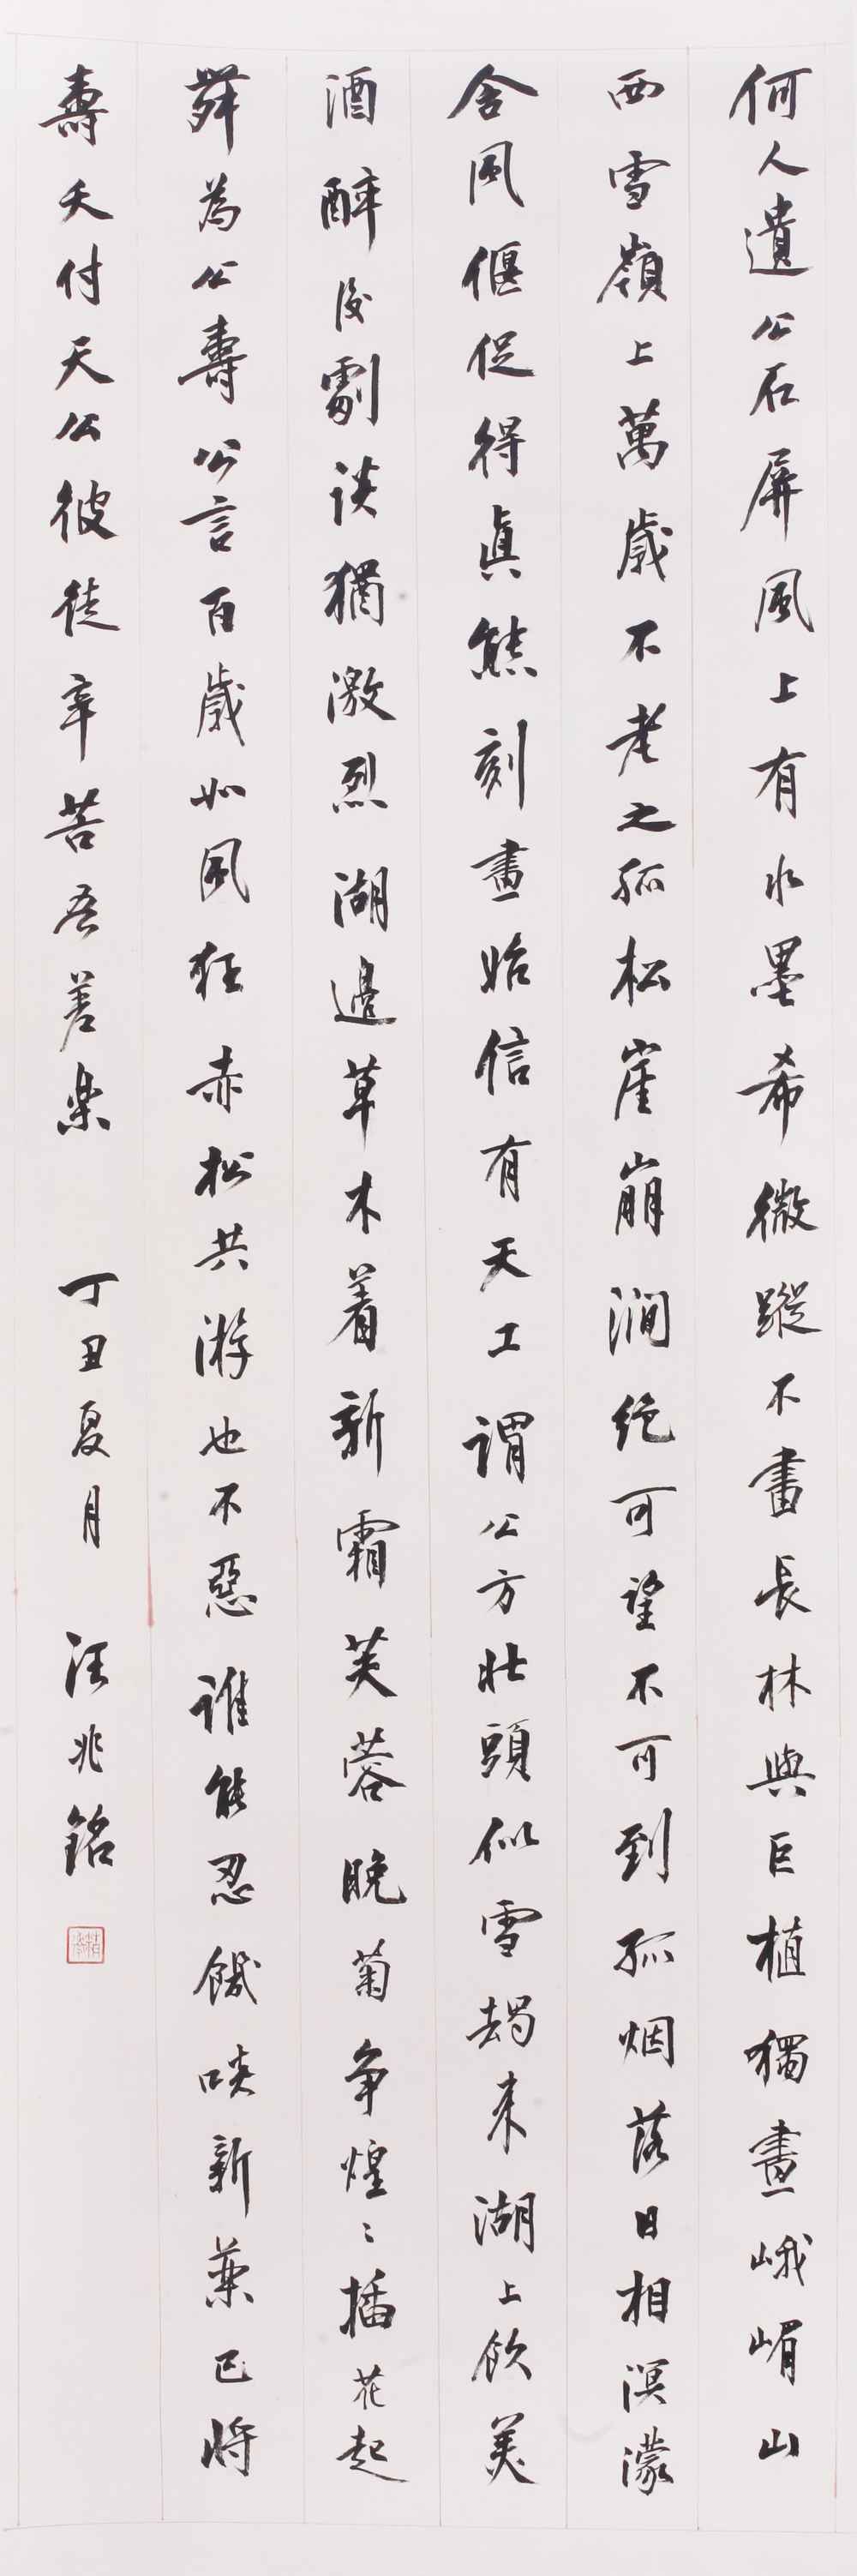 何人遺公石屏風上有水墨希微蹤不畫長林與巨植獨畫峨嵋山
西雪嶺上萬歲不老之孤松崖崩澗絕可望不可到孤烟落日相溟濛
含風偃促得真態刻畫始信有天工謂公方壯頭似雪朅來湖上飲美
酒醉後劇談猶激烈湖邊草木着新霜芙蓉晚菊争煌〻插花起
舞為公壽公言百歲如風狂赤松共游也不惡誰能忍飢啖新藥已將
壽夭付天公彼徒辛苦吾差樂
丁丑夏月 汪兆銘